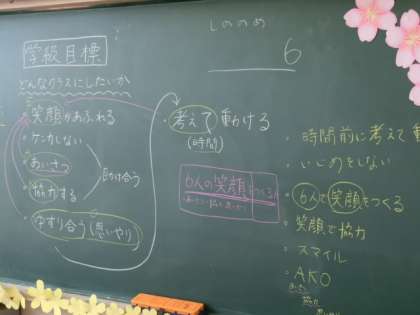 学級目標
しののめ
6
どんなクラスにしたいか
笑顔があふれる
ケンカしない
あいさつ
協力する
助け合う
ゆずり合う(思いやり)
考えて動ける
(時間)
6人の笑顔をつくる
時間前に考えて動
いじめをしない
6人で笑顔をつくる
笑顔で協力
スマイル
AKO
あいさつ
協力